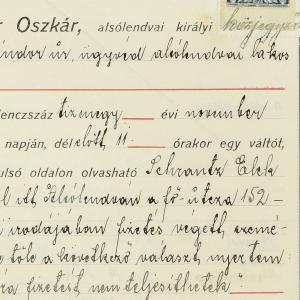 r Oszkár, alsólendvai királyi közjegyző
ándor úr, ügyvéd alsólendvai lakos
lenczszáz tizenegy évi november
napján, délelőtt 11 órakor egy váltót,
ulsó oldalon olvasható Schrantz Elek
l itt Alsólendván a fő-utcza 152-
i irodájában fizetés végett, szemé-
tőle a következő választ nyertem
ra fizetést nem teljesíthetek"